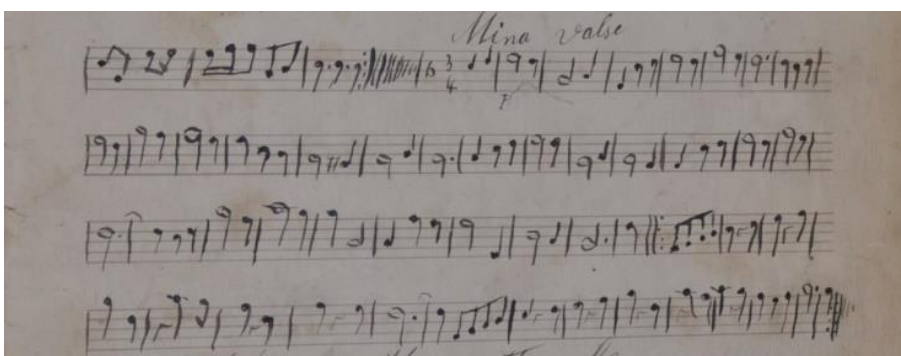 Mina Valse
3
4